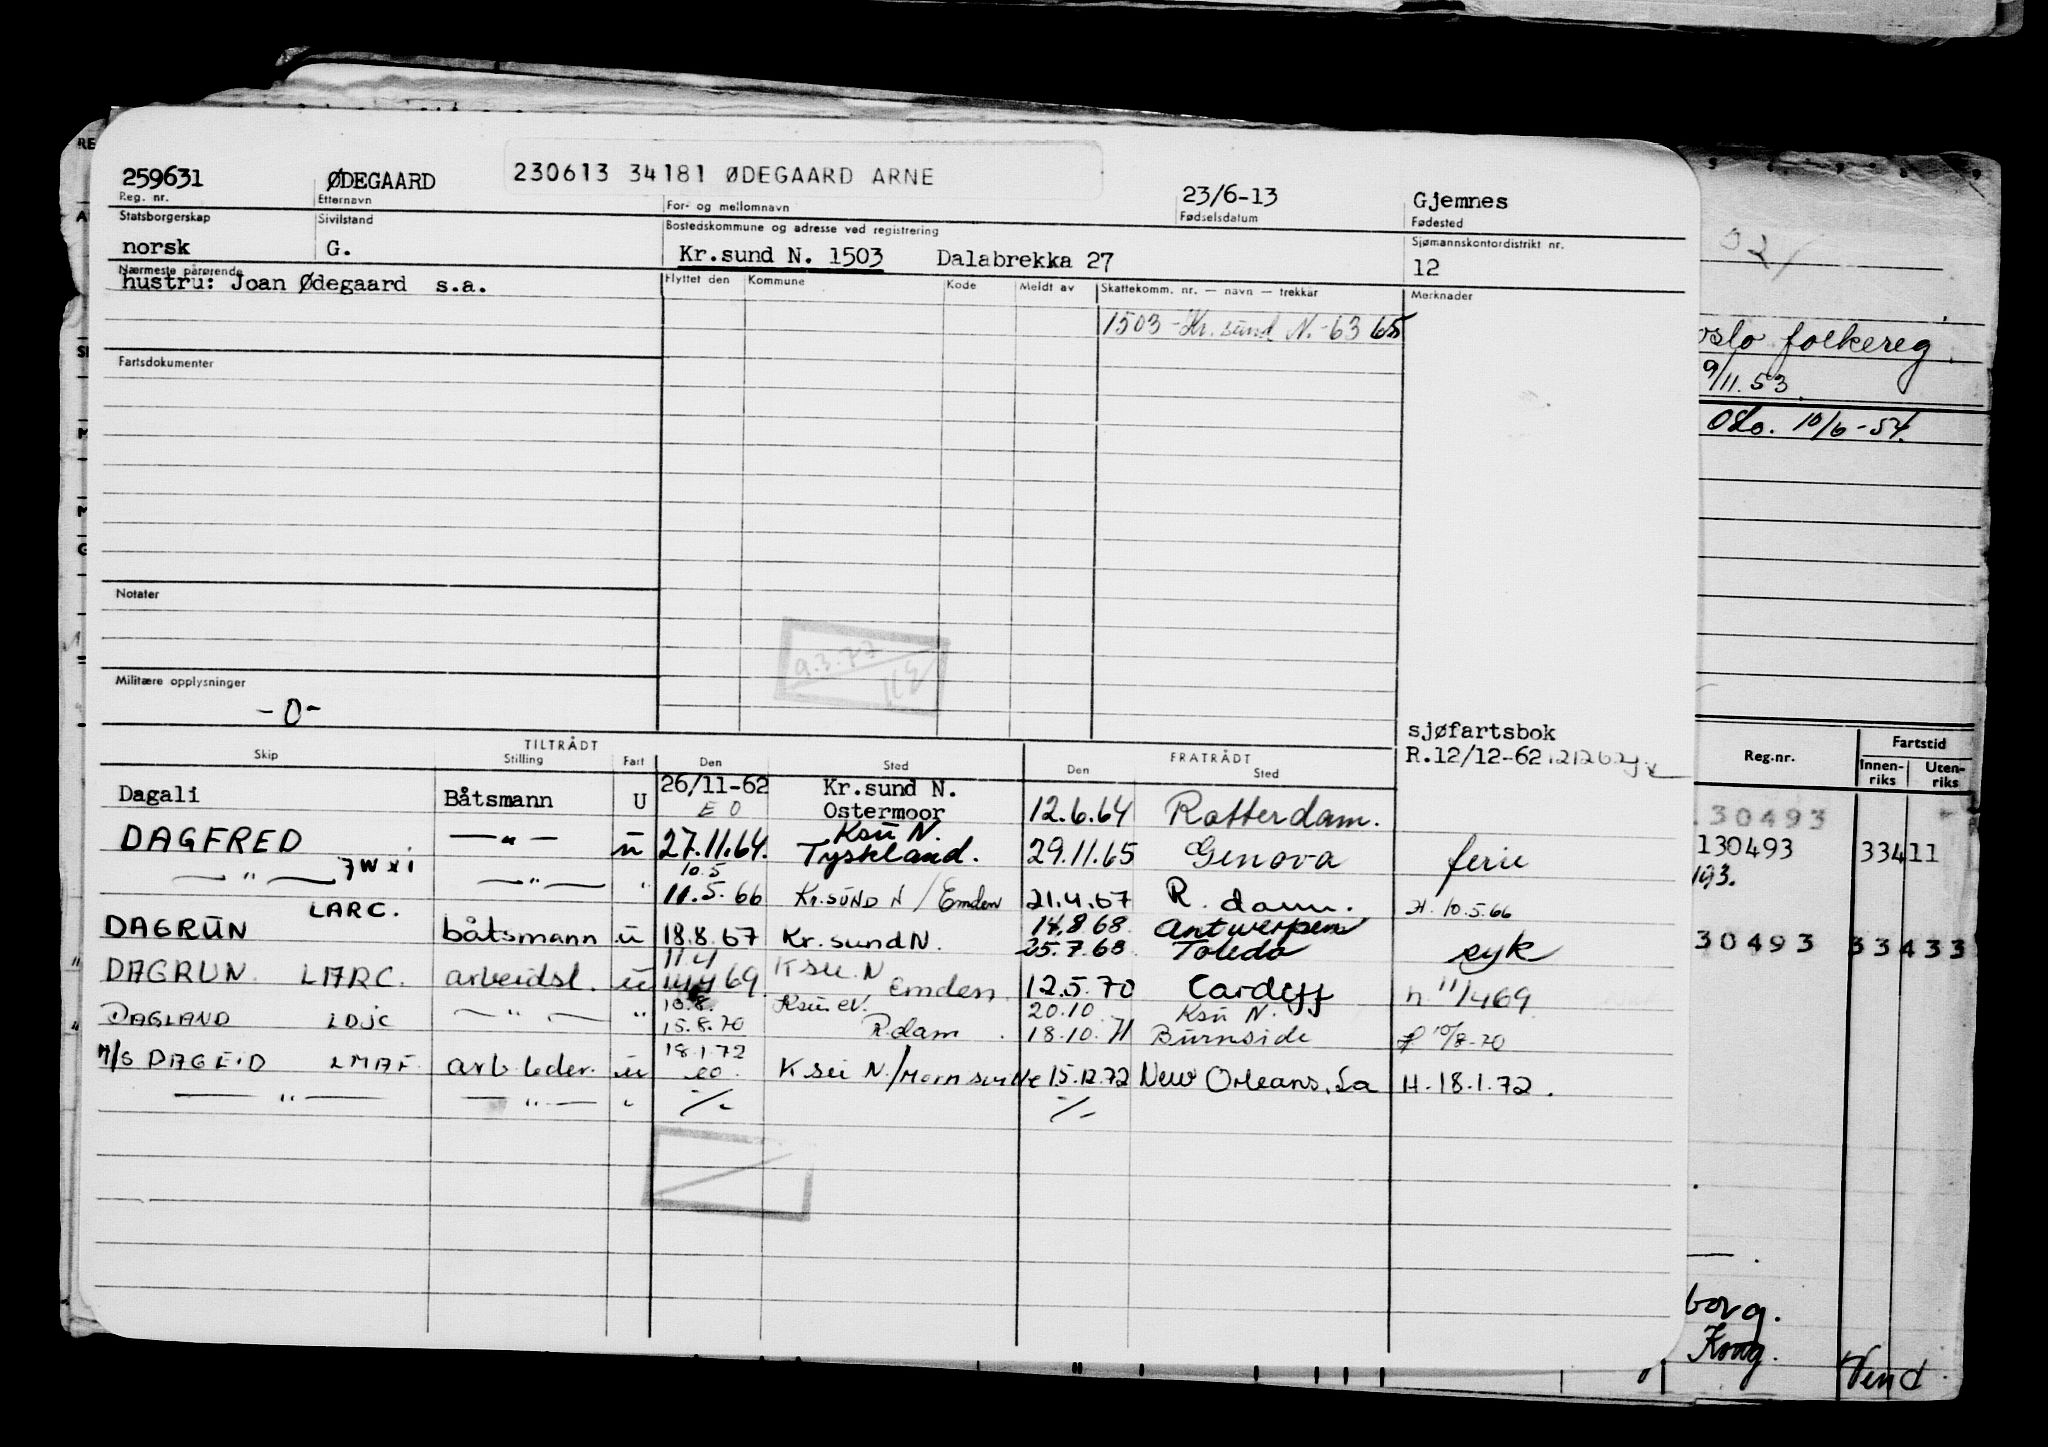 259631 ØDEGAARD 230613 34181 ØDEGAARD ARNE 23/6-13 Gjemnes
Reg. nr. Etternavn For- og mellomnavn Fødselsdatum Fødested
Statsborgerskap Sivilstand Bostedskommune og adresse ved registrering Sjømannskontordistrikt nr.
norsk G. Kr.sund N. 1503 Dalabrekka 27 12
Nærmeste pårørende Flyttet den Kommune Kode Meldt av Skattekomm. nr. — navn — trekkår Merknader
hustru: Joan Ødegaard s.a.
1503 - Kr. sund N. - 63 65
Fartsdokumenter
Notater
9.3.77
Militære opplysninger
- 0 -
sjøfartsbok
R.12/12-62 121262
TILTRÅDT FRATRÅDT
Skip Stilling Fart Den Sted Den Sted
Dagali Båtsmann U 26/11-62 Kr.sund N.
E O Ostermoor 12.6.64 Rotterdam.
DAGFRED — " — u 27.11.64. Ksu N. Tyskland. 29.11.65 Genova ferie
— " — 7WXI — " — " 10.5 11.5.66 Kr.SUND N / Emden 21.4.67 R.dam. H. 10.5.66
DAGRUN LARC. båtsmann u 18.8.67 Kr.sund N. 14.8.68 Antwerpen
25.7.68 Toledo syk
DAGRUN. LARC. arbeidsl. u 11.4 69 Ksu. N Emden. 12.5.70 Cardiff h 11/4 69
DAGLAND LDJC — " — " 10.8. 15.8.70 Ksu N. R.dam. 20.10 18.10.71 Ksu N. Burnside 10/8-70
M/S DAGEID LMAF. arb.leder. u 18.1.72 eo. Ksu N/ 15.12.72 New Orleans, La H. 18.1.72.
— " — — " — " -/- -/-
oslo folkereg.
9/11.53.
Oslo. 10/6-54.
Reg.nr. Fartstid
Innen-riks Uten-riks
130493
130493 33411
193.
30493 33433
borg.
Kong.
Vend